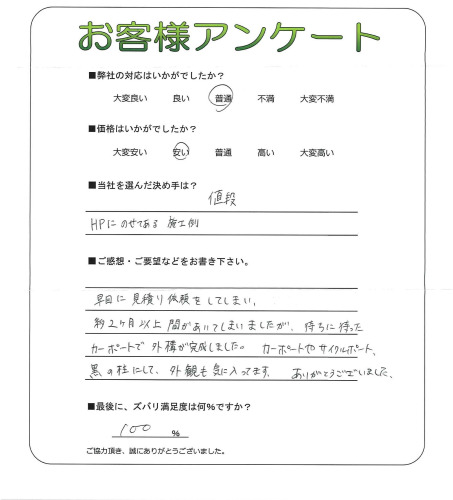 お客様アンケート
■弊社の対応はいかがでしたか？
大変良い 良い 普通 不満 大変不満
■価格はいかがでしたか？
大変安い 安い 普通 高い 大変高い
■当社を選んだ決め手は？
値段
HPにのせてある 施工例
■ご感想・ご要望などをお書き下さい。
早目に見積り依頼をしてしまい、
約2ヶ月以上 間があいてしまいましたが、待ちに待った
カーポートで 外構が完成しました。 カーポートやサイクルポート、
黒の柱にして、外観も気に入ってます。 ありがとうございました、
■最後に、ズバリ満足度は何％ですか？
100 ％
ご協力頂き、誠にありがとうございました。